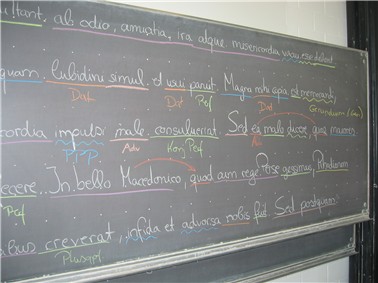 ultant, ab odio, amicitia, ira atque misericordia vacuos esse decet.
quam. Lubidini simul et usui paruit. Magna mihi copia est memorandi,
Dat Dat Perf Dat Gerundium (Gen)
cordia impulsi male consuluerint. Sed ea malo dicere, quae maiores
PPP Adv Konj Perf
fecere. In bello Macedonico, quod cum rege Perse gessimus, Rhodiorum
Perf
ibus creverat, infida et advorsa nobis fuit. Sed postquam
Plusqpf